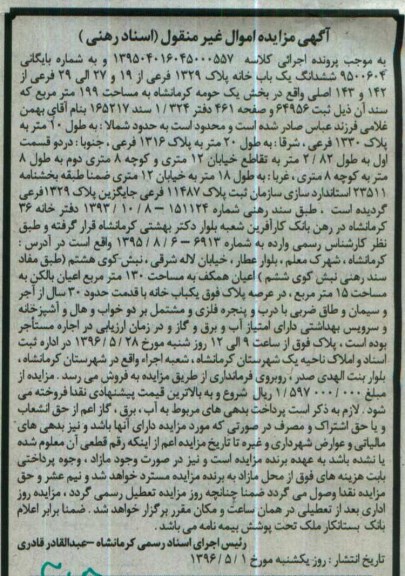 آگهی مزایده اموال غیر منقول (اسناد رهنی)
به موجب پرونده اجرائی کلاسه ۱۳۹۵۰۴۰۱۶۰۴۵۰۰۰۵۵۷ و به شماره بایگانی
۹۵۰۰۶۰۴ ششدانگ یک باب خانه پلاک ۱۳۲۹ فرعی از ۱۹ و ۲۷ الی ۲۹ فرعی از
۱۴۲ و ۱۴۳ اصلی واقع در بخش یک حومه کرمانشاه به مساحت ۱۹۹ متر مربع که
سند آن ذیل ثبت ۶۴۹۵۶ و صفحه ۴۶۱ دفتر ۱/۳۲۴ سند ۱۶۵۲۱۷ بنام آقای بهمن
غلامی فرزند عباس صادر شده است و محدود است به حدود شمالا : به طول ۱۰ متر به
پلاک ۱۳۳۰ فرعی ، شرقا : به طول ۲۰ متر به پلاک ۱۳۱۶ فرعی ، جنوبا : در دو قسمت
اول به طول ۲/۸۲ متر به تقاطع خیابان ۱۲ متری و کوچه ۸ متری دوم به طول ۸
متر به کوچه ۸ متری ، غربا : به طول ۱۸ متر به خیابان ۱۲ متری ضمنا طبقه بخشنامه
۲۳۵۱۱ استاندارد سازی سازمان ثبت پلاک ۱۱۴۸۷ فرعی جایگزین پلاک ۱۳۲۹فرعی
گردیده است . طبق سند رهنی شماره ۱۵۱۱۲۴ – ۱۳۹۳/۱۰/۸ دفتر خانه ۳۶
کرمانشاه در رهن بانک کارآفرین شعبه بلوار دکتر بهشتی کرمانشاه قرار گرفته و طبق
نظر کارشناس رسمی وارده به شماره ۶۹۱۳ – ۱۳۹۵/۸/۶ واقع است در آدرس :
کرمانشاه ، شهرک معلم ، بلوار عطار ، خیابان لاله شرقی ، نبش کوی هشتم (طبق مفاد
سند رهنی نبش کوی ششم) اعیان همکف به مساحت ۱۳۰ متر مربع اعیان بالکن به
مساحت ۱۵ متر مربع ، در عرصه پلاک فوق یکباب خانه با قدمت حدود ۳۰ سال از آجر
و سیمان و طاق ضربی با درب و پنجره فلزی و مشتمل بر دو خواب و هال و آشپزخانه
و سرویس بهداشتی دارای امتیاز آب و برق و گاز و در زمان ارزیابی در اجاره مستأجر
بوده است ، پلاک فوق از ساعت ۹ الی ۱۲ روز شنبه مورخ ۱۳۹۶/۵/۲۸ در اداره ثبت
اسناد و املاک ناحیه یک شهرستان کرمانشاه ، شعبه اجراء واقع در شهرستان کرمانشاه ،
بلوار بنت الهدی صدر ، روبروی فرمانداری از طریق مزایده به فروش می رسد . مزایده از
مبلغ ۱/۵۹۷/۰۰۰/۰۰۰ ریال شروع و به بالاترین قیمت پیشنهادی نقدا فروخته می
شود . لازم به ذکر است پرداخت بدهی های مربوط به آب ، برق ، گاز اعم از حق انشعاب
و یا حق اشتراک و مصرف در صورتی که مورد مزایده دارای آنها باشد و نیز بدهی های
مالیاتی و عوارض شهرداری و غیره تا تاریخ مزایده اعم از اینکه رقم قطعی آن معلوم شده
یا نشده باشد به عهده برنده مزایده است و نیز در صورت وجود مازاد ، وجوه پرداختی
بابت هزینه های فوق از محل مازاد به برنده مزایده مسترد خواهد شد و نیم عشر و حق
مزایده نقدا وصول می گردد ضمنا چنانچه روز مزایده تعطیل رسمی گردد ، مزایده روز
اداری بعد از تعطیلی در همان ساعت و مکان مقرر برگزار خواهد شد . ضمنا برابر اعلام
بانک بستانکار ملک تحت پوشش بیمه نامه می باشد .
رئیس اجرای اسناد رسمی کرمانشاه – عبدالقادر قادری
تاریخ انتشار : روز یکشنبه مورخ ۱۳۹۶/۵/۱